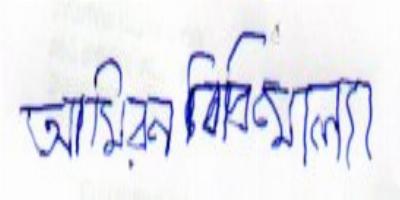 আমিরন বিবি মোল্যা